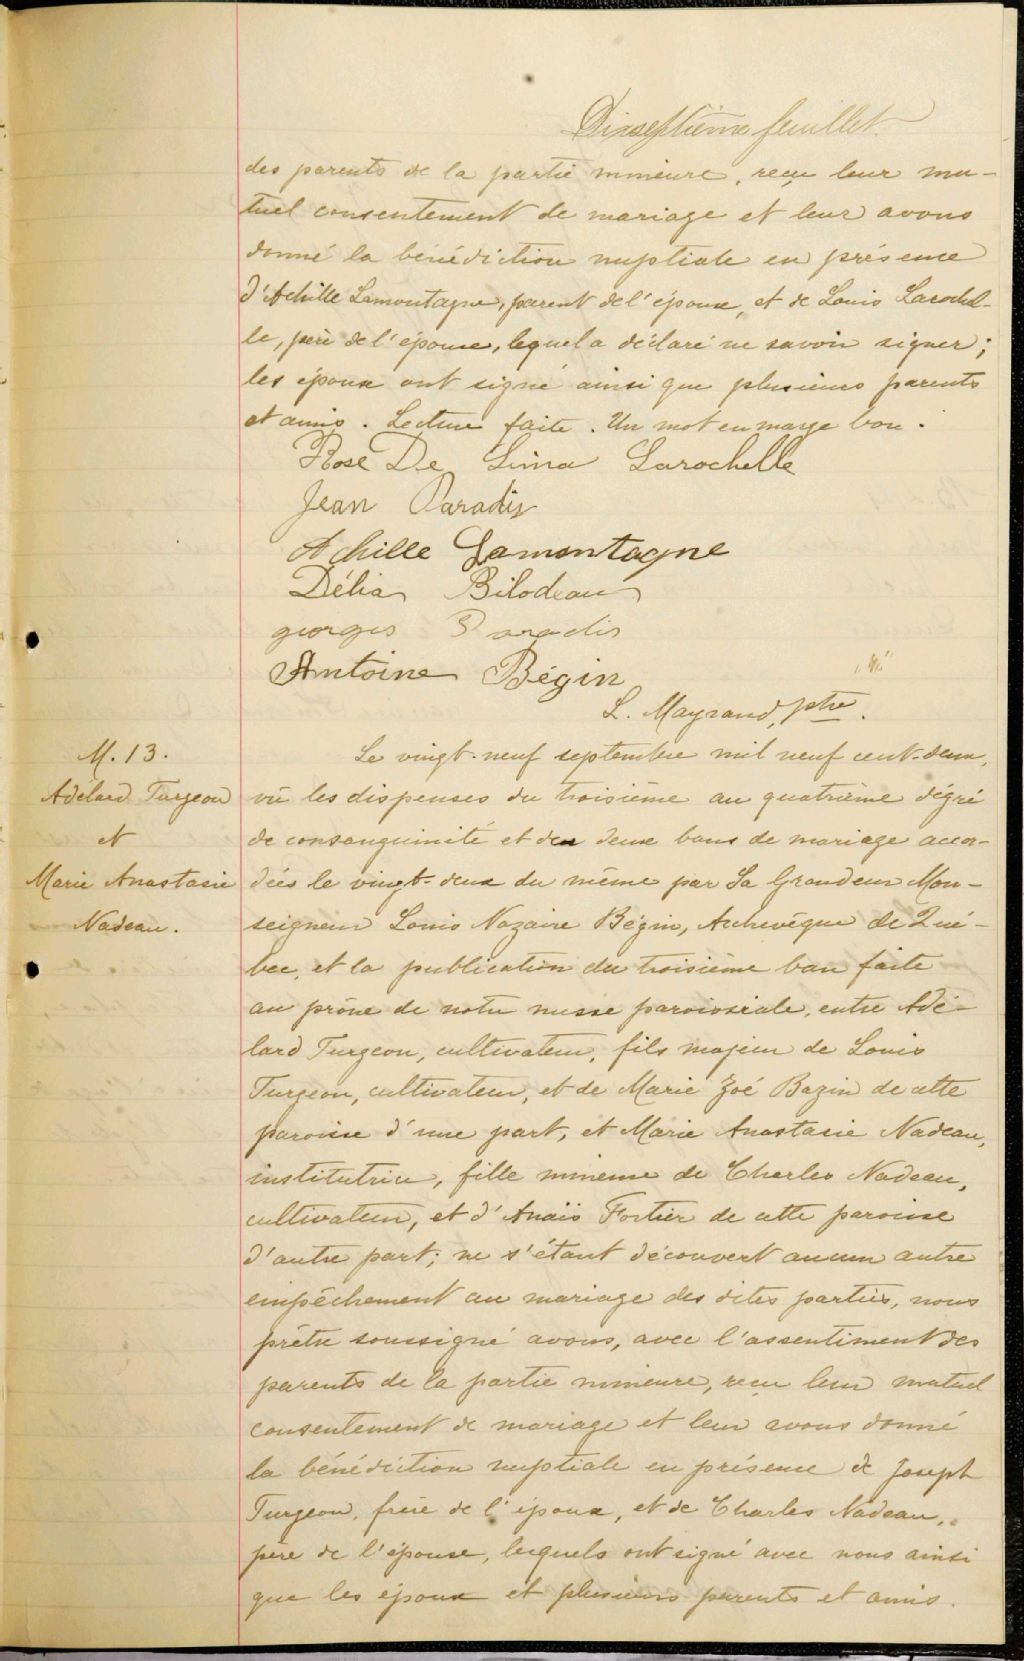 Dixseptième feuillet.
des parents de la partie mineure, reçu leur mu-
tuel consentement de mariage et leur avons
donné la bénédiction nuptiale en présence
d'Achille Lamontagne, parent de l'époux, et de Louis Larochel-
le, père de l'épouse, lequel a déclaré ne savoir signer;
les époux ont signé ainsi que plusieurs parents
et amis. Lecture faite. Un mot en marge bon.
Rose De Lima Larochelle
Jean Paradis
Achille Lamontagne
Délia Bilodeau
georges Paradis
Antoine Bégin
L. Mayrand, ptre.
M. 13.
Adélard Turgeon
et
Marie Anastasie
Nadeau.
Le vingt-neuf septembre mil neuf cent-deux,
vu les dispenses du troisième au quatrième dégré
de consanguinité et des deux bans de mariage accor-
dées le vingt-deux du même par Sa Grandeur Mon-
seigneur Louis Nazaire Bégin, Archevêque de Qué-
bec, et la publication du troisième ban faite
au prône de notre messe paroissiale, entre Adé-
lard Turgeon, cultivateur, fils majeur de Louis
Turgeon, cultivateur, et de Marie Zoé Bazin de cette
paroisse d'une part, et Marie Anastasie Nadeau,
institutrice, fille mineure de Charles Nadeau,
cultivateur, et d'Anaïs Fortier de cette paroisse
d'autre part; ne s'étant découvert aucun autre
empêchement au mariage des dites parties, nous
prêtre soussigné avons, avec l'assentiment des
parents de la partie mineure, reçu leur mutuel
consentement de mariage et leur avons donné
la bénédiction nuptiale en présence de Joseph
Turgeon, frère de l'époux, et de Charles Nadeau,
père de l'épouse, lesquels ont signé avec nous ainsi
que les époux et plusieurs parents et amis.